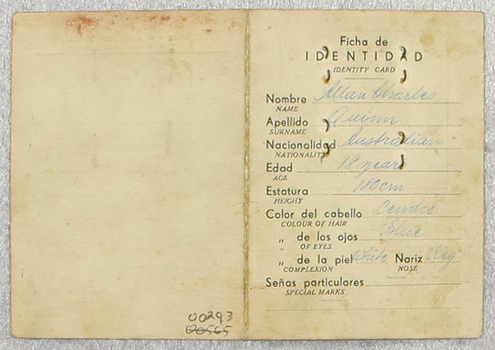 Ficha de
IDENTIDAD
IDENTITY CARD
Nombre Allan Charles
NAME
Apellido Quinn
SURNAME
Nacionalidad Australian
NATIONALITY
Edad 18 years
AGE
Estatura 180cm
HEIGHT
Color del cabello
COLOUR OF HAIR
„ de los ojos Blue
„ OF EYES
„ de la piel White Nariz
COMPLEXION NOSE
Señas particulares
SPECIAL MARKS
00293
00565